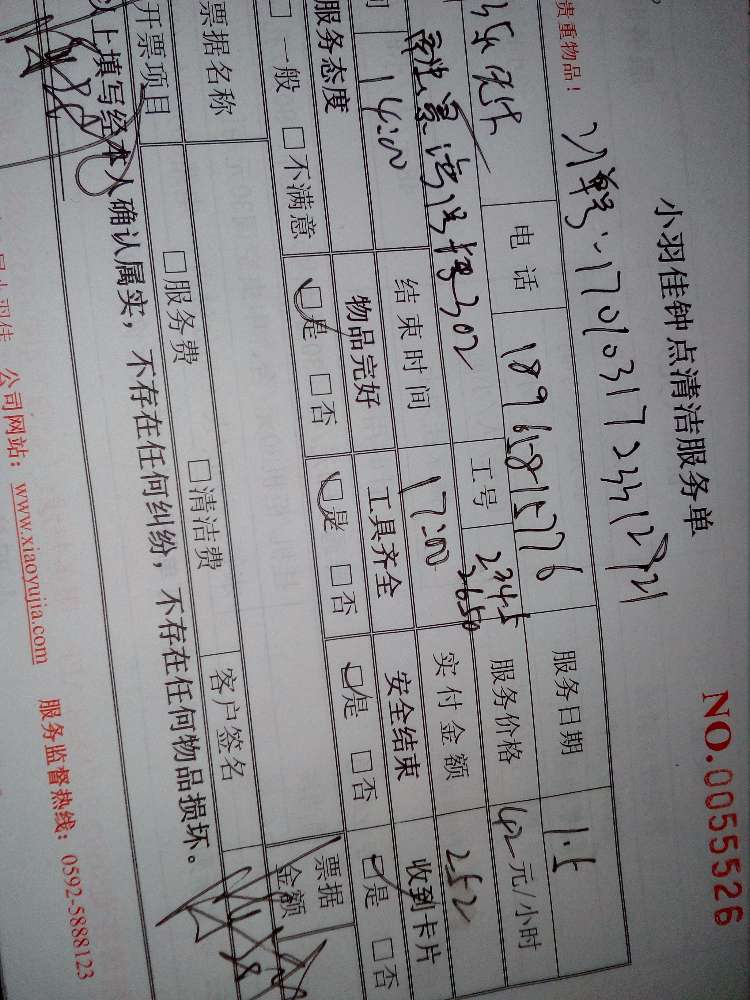 小羽佳钟点清洁服务单
NO.0055526
贵重物品！
订单号：17010317233412721
电话 18965815776 服务日期 1.5
工号 2345 2650 服务价格 42元/小时
302 实付金额 252
14:00 结束时间 17:00
服务态度 物品完好 工具齐全 安全结束 收到卡片
□一般 □不满意 □是 □否 □是 □否 □是 □否 □是 □否
票据名称 票据金额
开票项目 □服务费 □清洁费 客户签名
以上填写经本人确认属实，不存在任何纠纷，不存在任何物品损坏。
小羽佳 公司网站：www.xiaoyujia.com 服务监督热线：0592-5888123